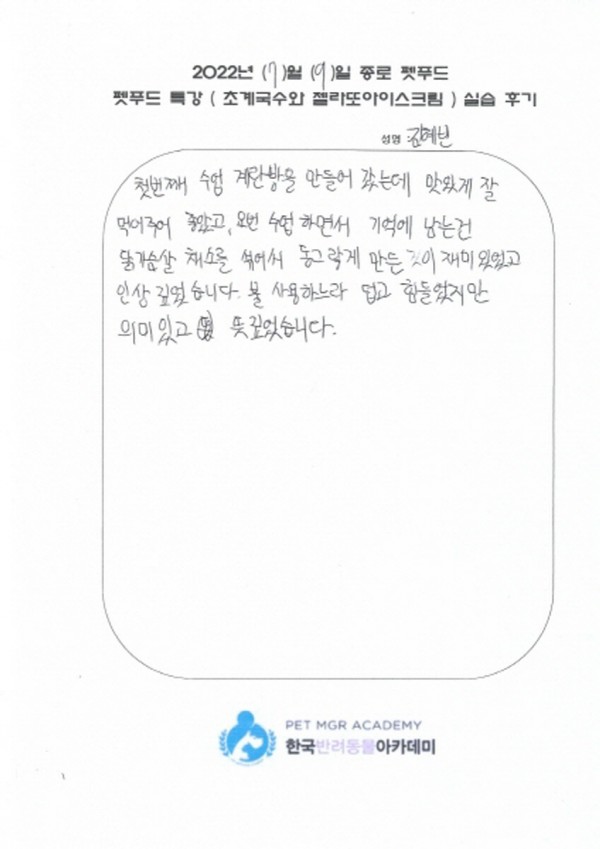 2022년 (7)월 (9)일 종로 펫푸드
펫푸드 특강 ( 초계국수와 젤라또아이스크림 ) 실습 후기
성명 : 김혜빈
첫번째 수업 계란빵을 만들어 갔는데 맛있게 잘
먹어주어 좋았고, 요번 수업 하면서 기억에 남는건
닭가슴살 채소를 섞어서 동그랗게 만든 것이 재미있었고
인상 깊었습니다. 불 사용하느라 덥고 힘들었지만
의미있고 뜻깊었습니다.
PET MGR ACADEMY
한국반려동물아카데미